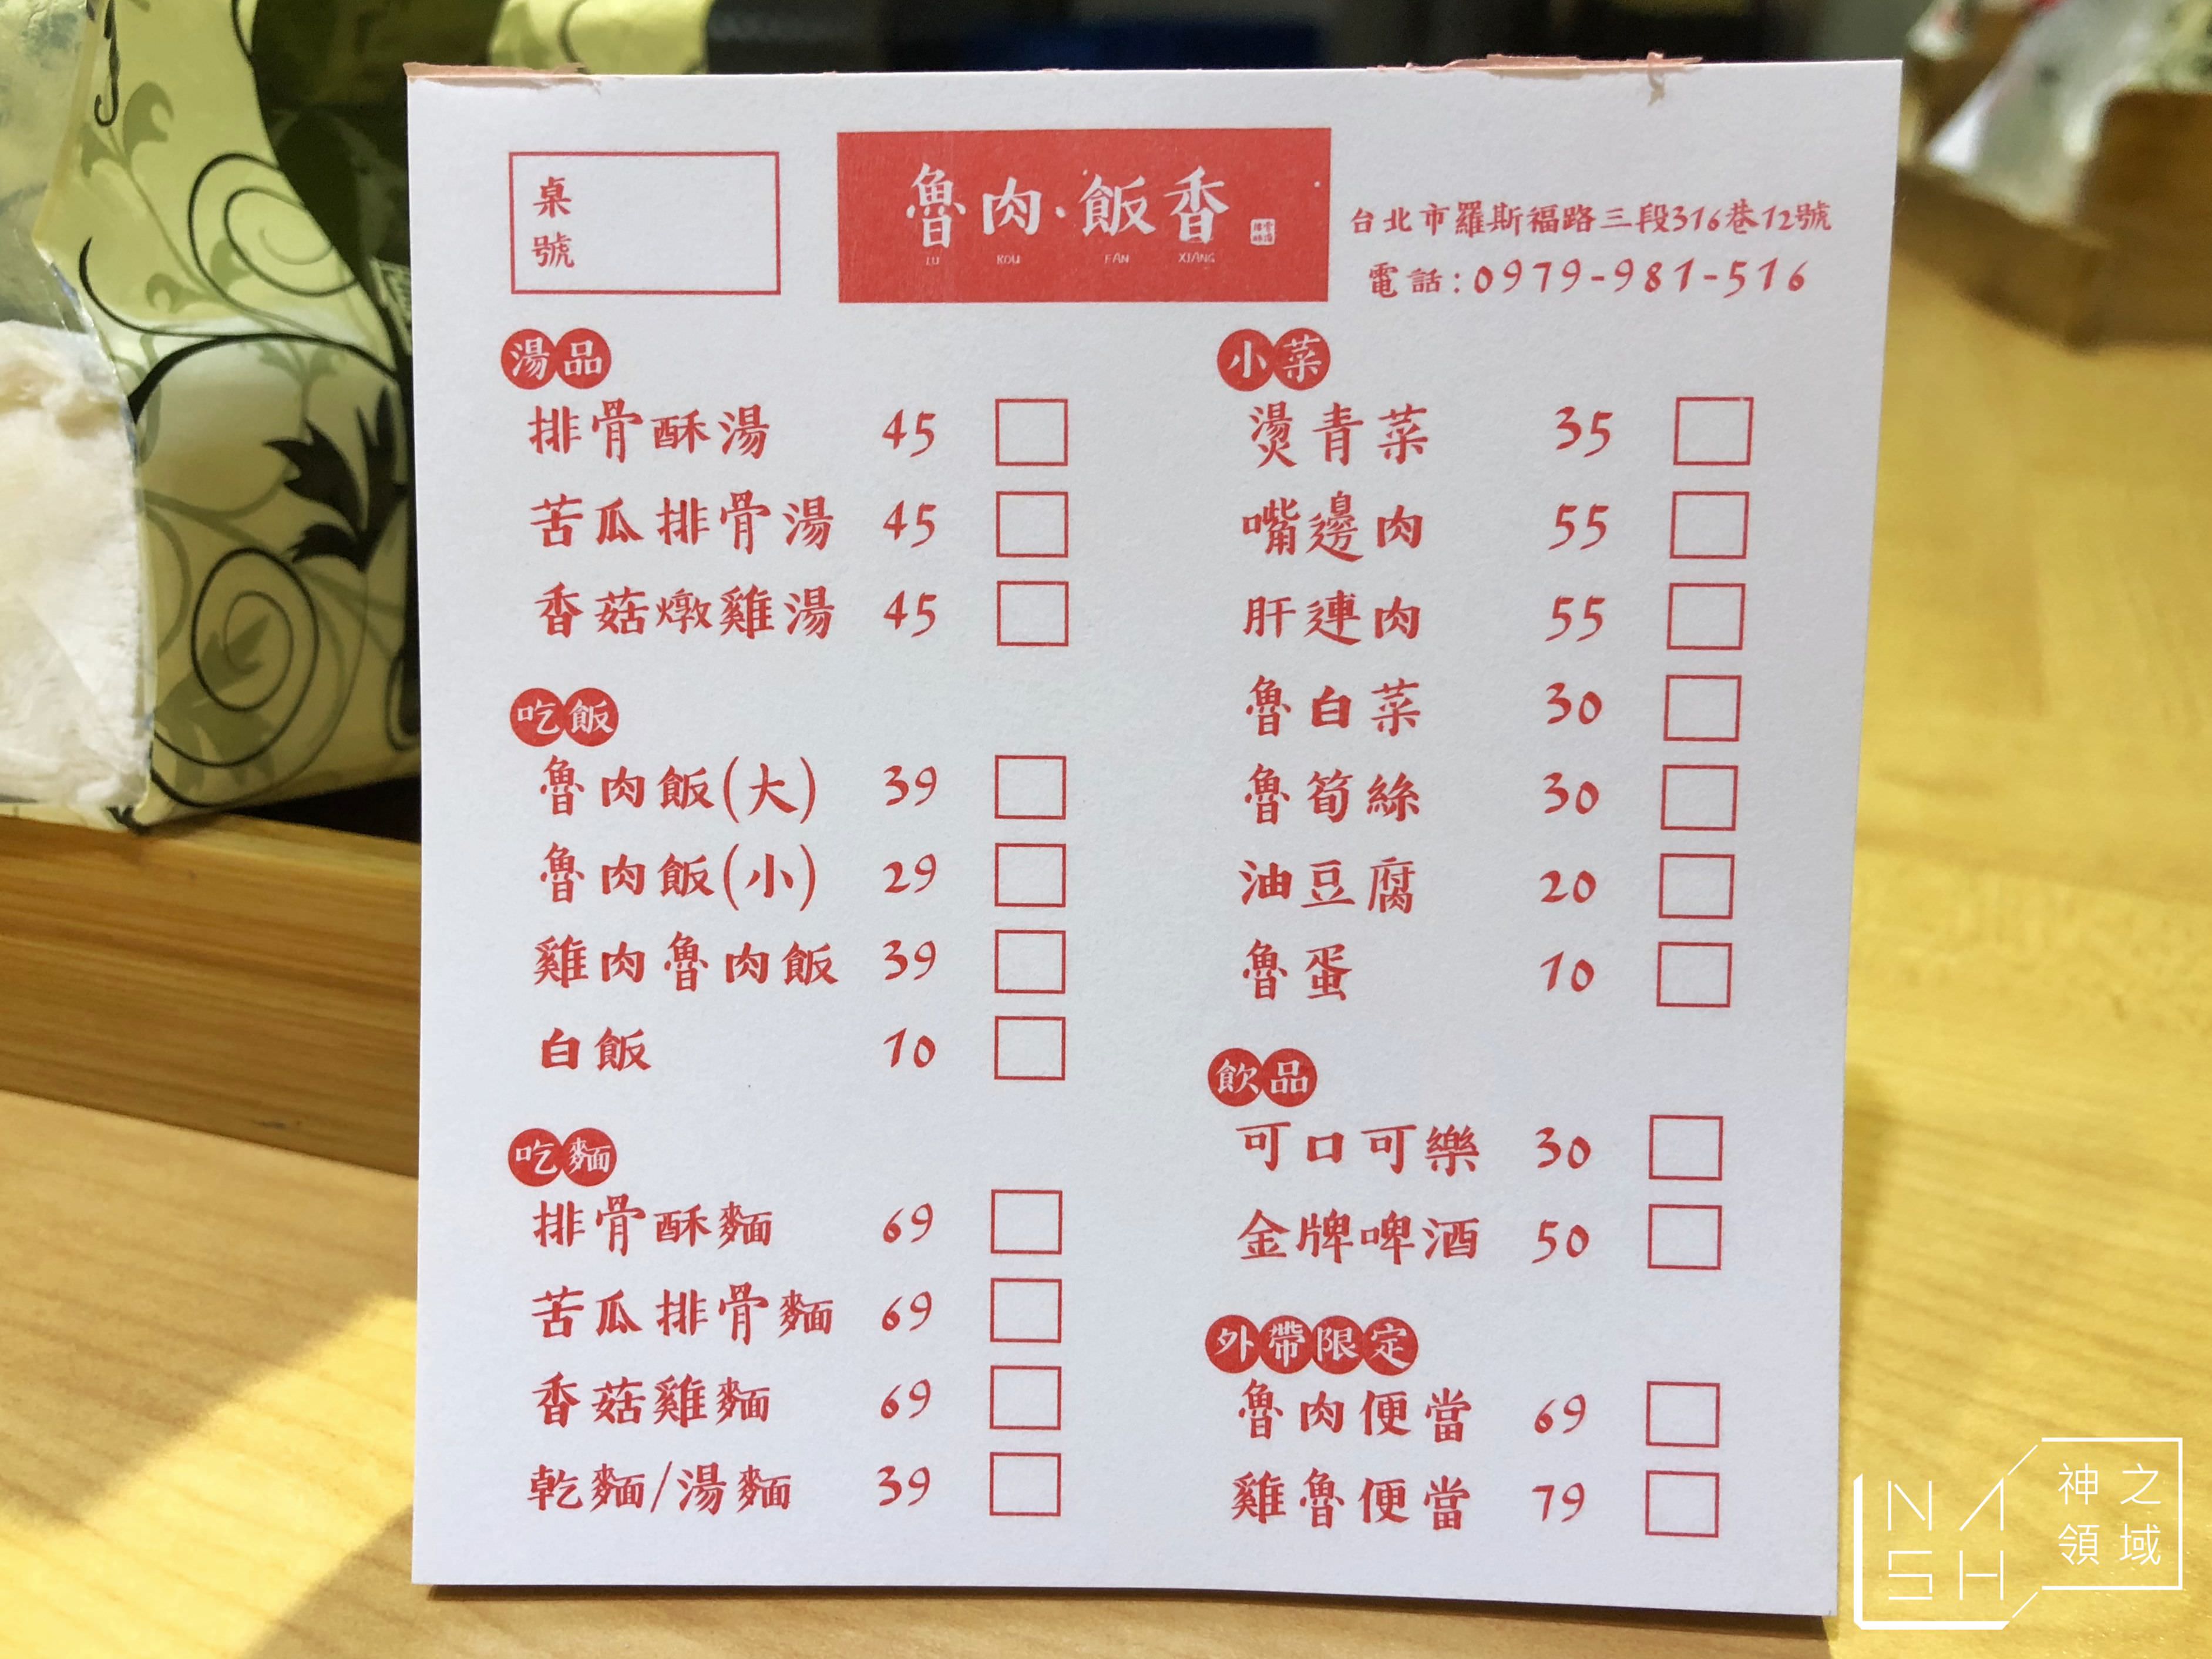 桌號
魯肉·飯香
LU ROU FAN XIANG
台北市羅斯福路三段316巷12號
電話:0979-981-516
湯品
排骨酥湯 45
苦瓜排骨湯 45
香菇燉雞湯 45
吃飯
魯肉飯(大) 39
魯肉飯(小) 29
雞肉魯肉飯 39
白飯 10
吃麵
排骨酥麵 69
苦瓜排骨麵 69
香菇雞麵 69
乾麵/湯麵 39
小菜
燙青菜 35
嘴邊肉 55
肝連肉 55
魯白菜 30
魯筍絲 30
油豆腐 20
魯蛋 10
飲品
可口可樂 30
金牌啤酒 50
外帶限定
魯肉便當 69
雞魯便當 79
NASH
神之領域